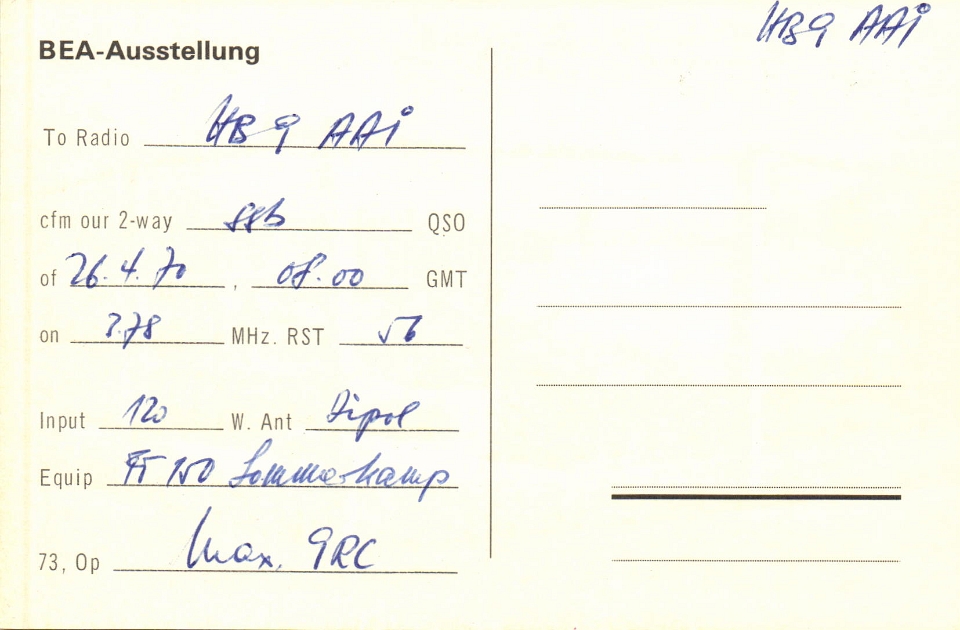 BEA-Ausstellung
To Radio HB9 AAI
cfm our 2-way SSB QSO
of 26.4.70, 08.00 GMT
on 3.78 MHz. RST 56
Input 120 W. Ant Dipol
Equip FT 150 Sommerkamp
73, Op Max. 9RC
HB9 AAI